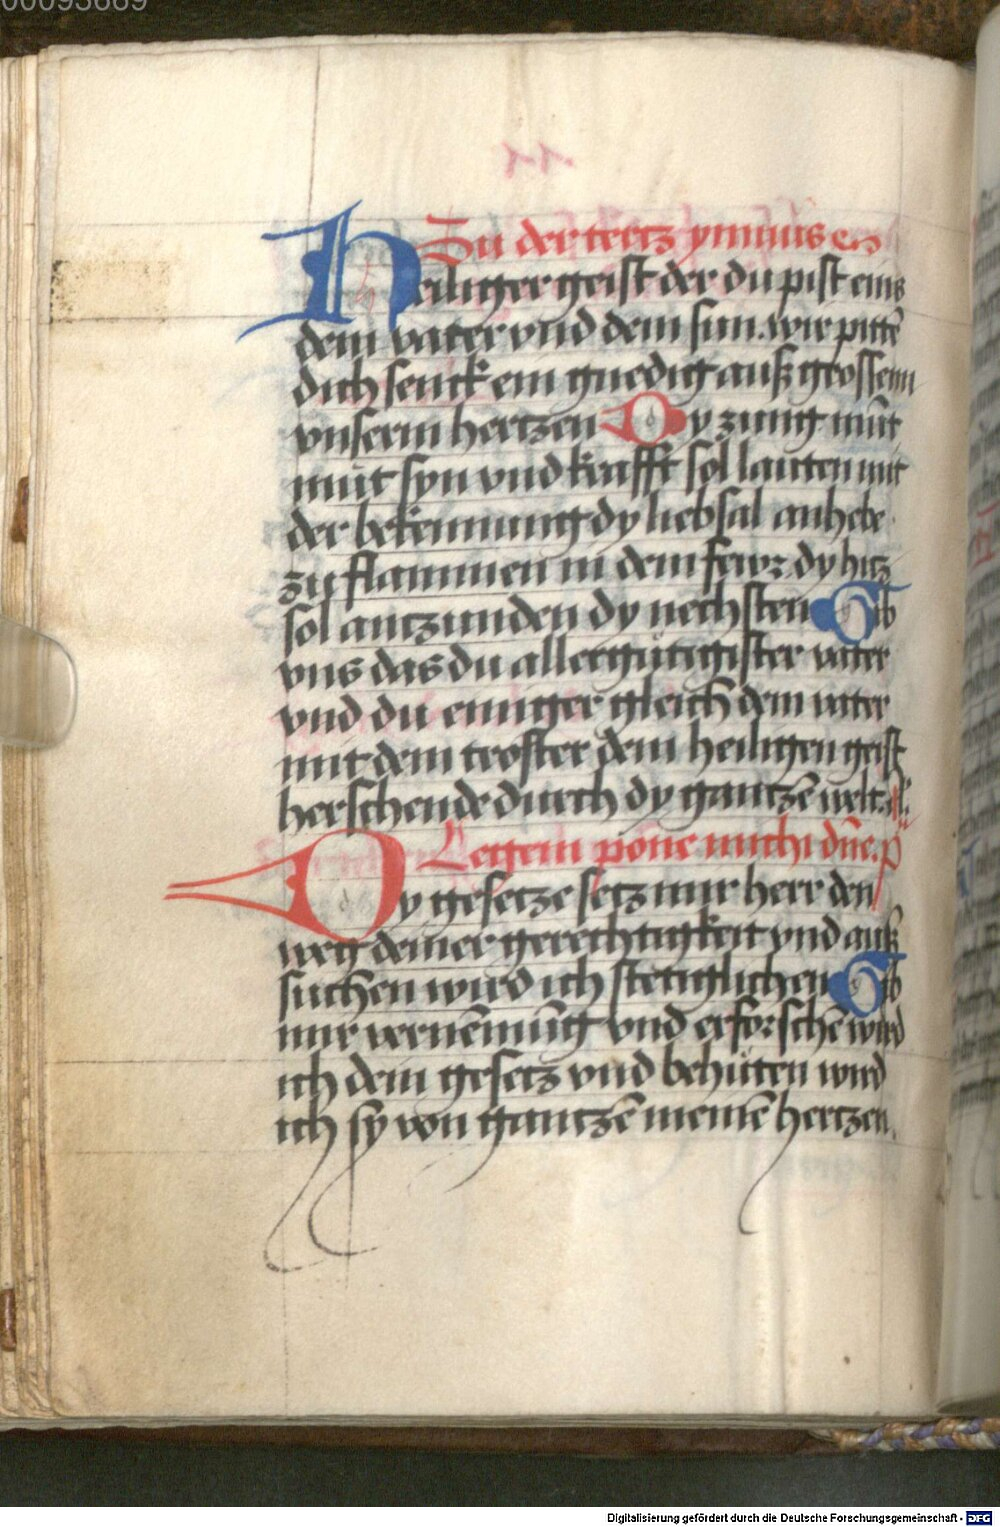 00093669
Zu der tertz ymnus
Heiliger geist der du pist eins
dem vater vnd dem sun. wir pittē
dich senck ein gnedig auß grossem
vnserm hertzen Dy zung mūt
mut syn vnd krafft sol lauten mit
der bekennung dy liebsal anhebe
zu flammen in dem fewr. dy hitz
sol antzunden dy nechsten Gib
vns das du allergütigister vater
vnd du einiger gleich dem vater
mit dem troster dem heiligen geist
herschende durch dy gantzē welt.
Legem pone michi dn̄e. p̄
Dy gesetze setz mir herr den
weg deiner gerechtigkeit vnd auß
suchen wird ich stetiglichen Gib
mir vernēmūg vnd erforschē wird
ich dein gesetz vnd behüten wird
ich sy von gantzē meinē hertzen.
Digitalisierung gefördert durch die Deutsche Forschungsgemeinschaft - DFG